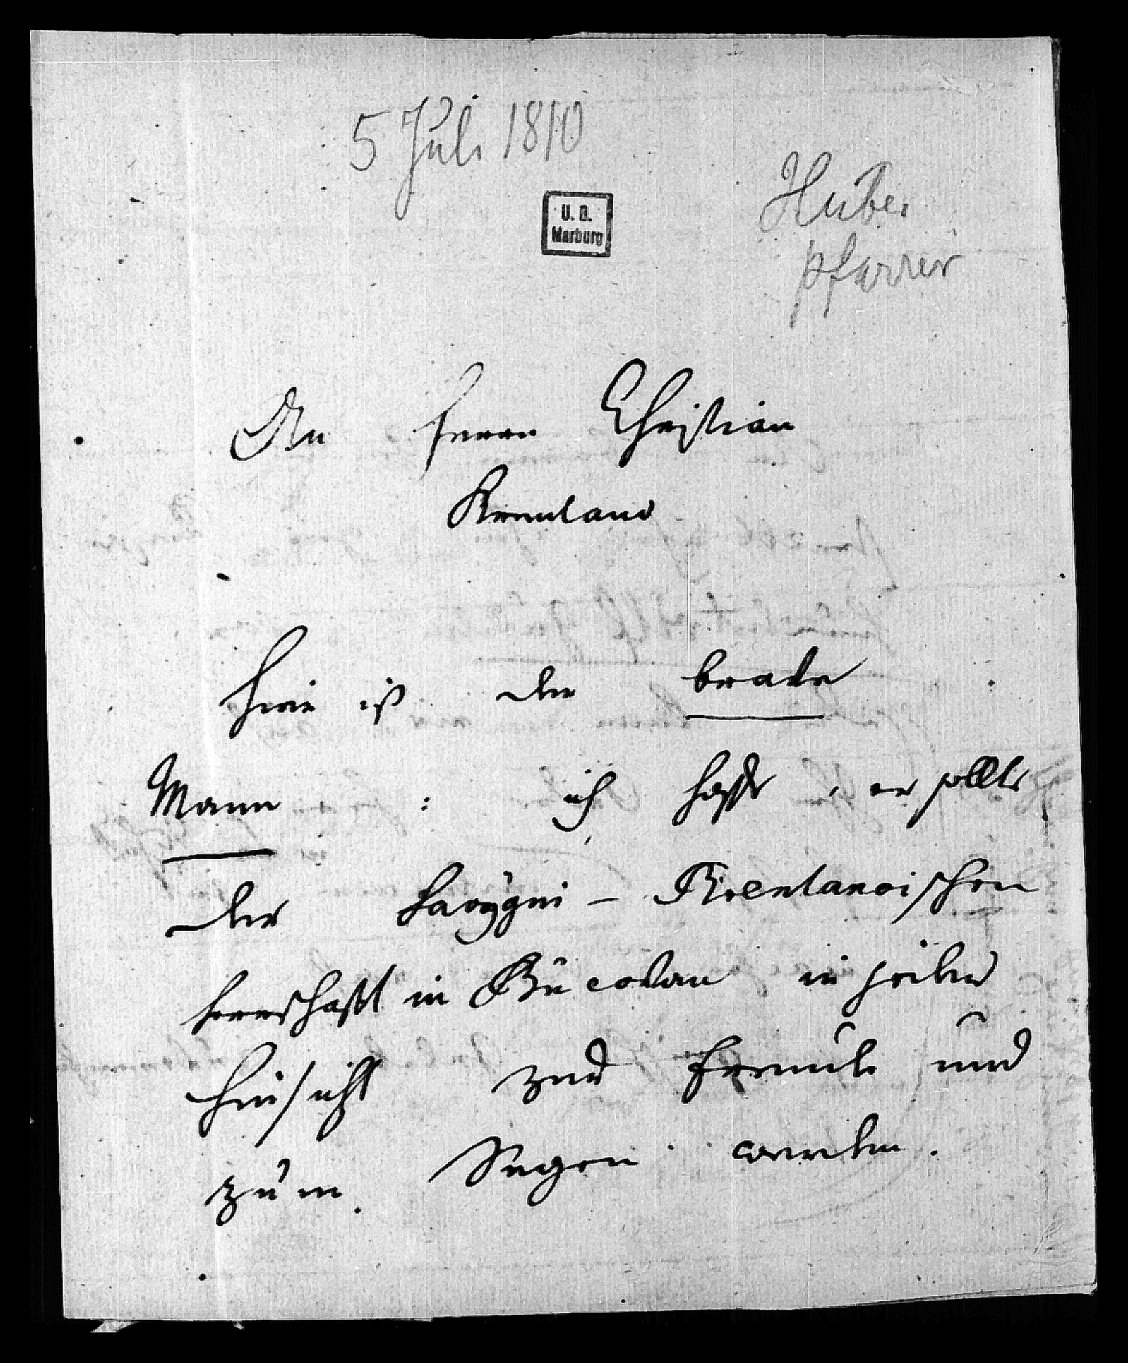 5 Juli 1810
U. B.
Marburg
Huber
pfarrer
An Herrn Christian
Brentano
Hier ist der brave
Mann : ich hoffe, er sollte
der Savÿgni - Brentanoischen
Herrschaft in Bücowan in jeder
Hinsicht zur Freude und
zum Segen werden.